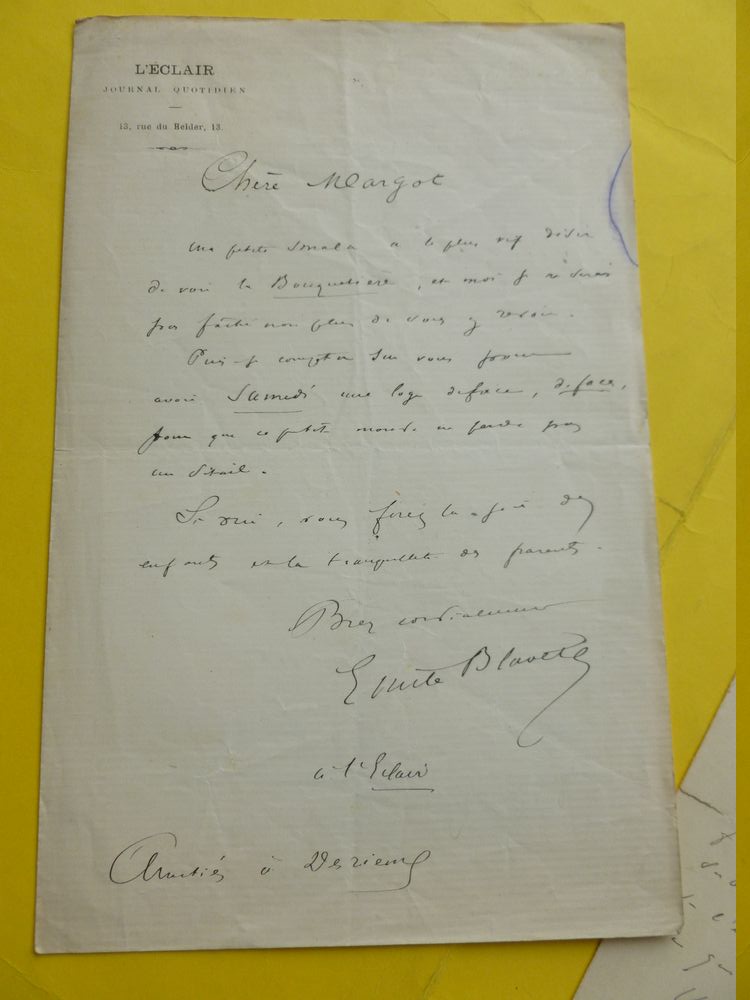 L'ECLAIR
JOURNAL QUOTIDIEN
13, rue du Helder, 13.
Chère Margot
Ma petite smala a le plus vif désir
de voir la Bouquetière, et moi je ne serais
pas fâché non plus de vous y revoir.
Puis-je compter sur vous pour
avoir Samedi une loge de face, de face,
pour que ce petit monde ne perde pas
un détail.
Si oui, vous ferez la joie des
enfants et la tranquillité des parents.
Bien cordialement
Emile Blavet
à l'Eclair
Amitiés à